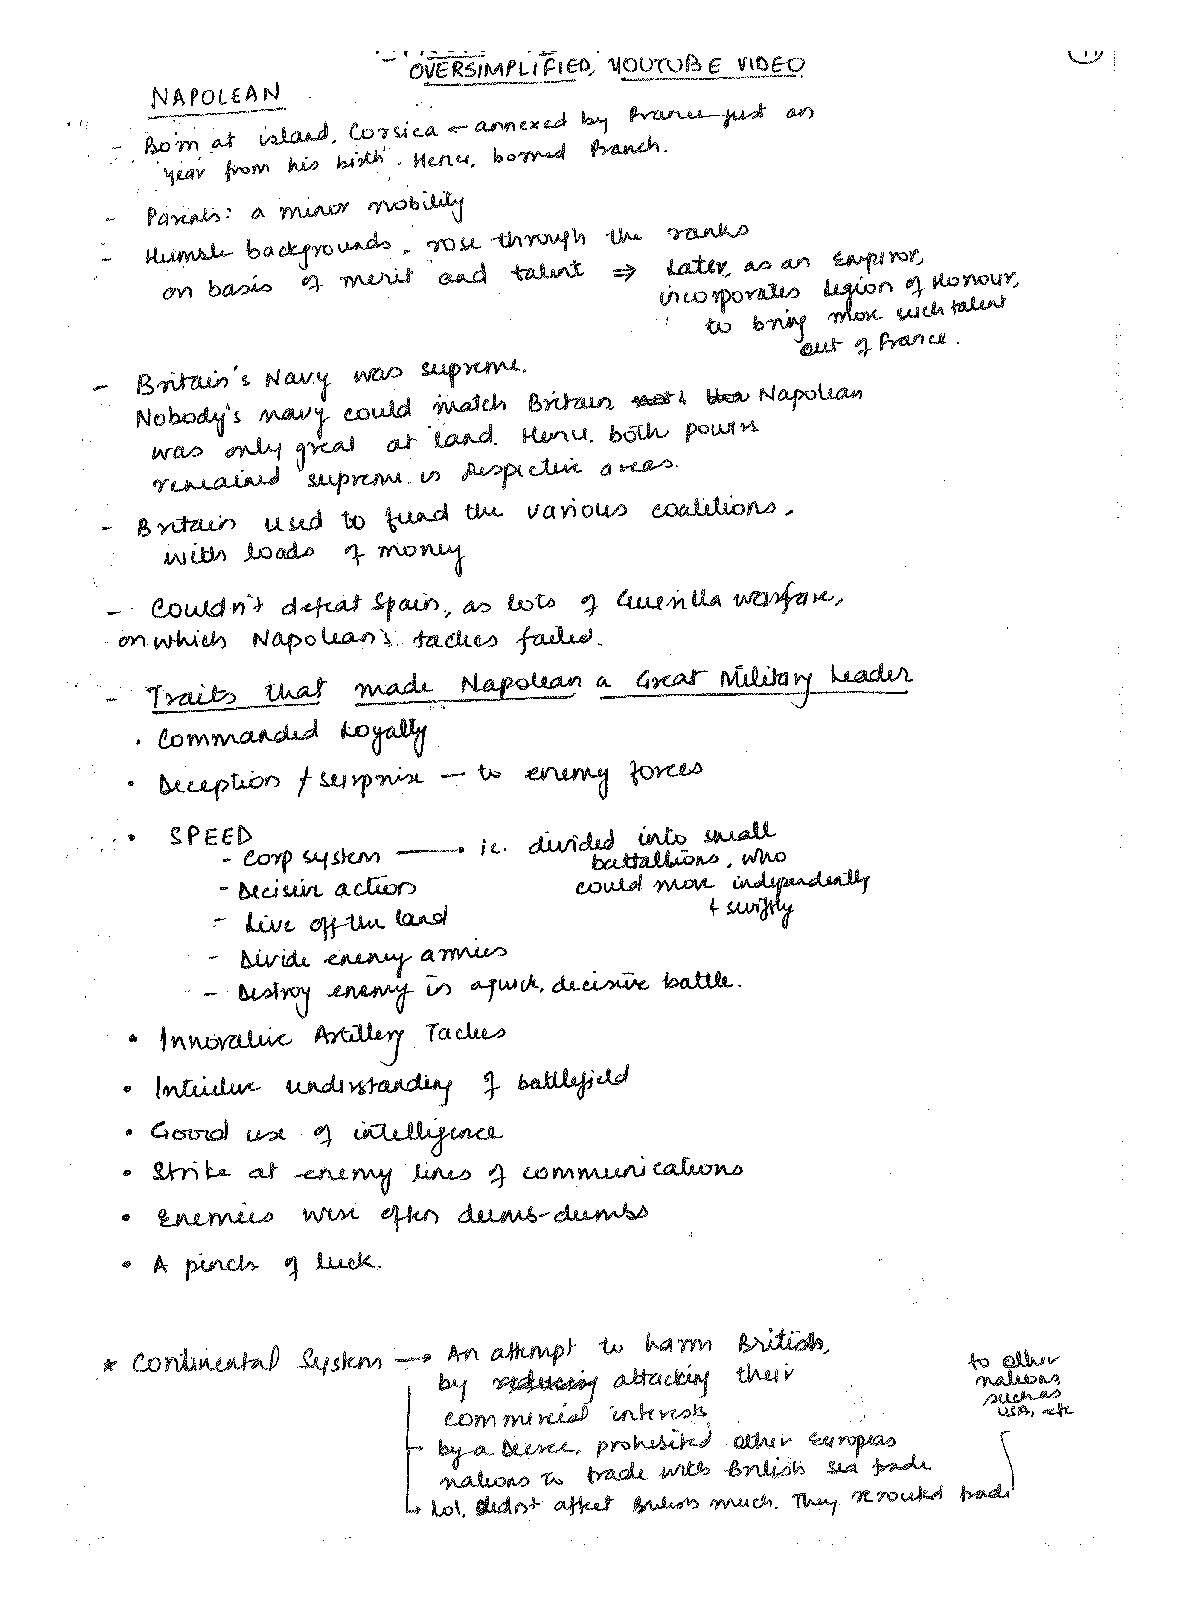 OVERSIMPLIFIED, YOUTUBE VIDEO
NAPOLEAN
- Born at island, Corsica – annexed by France just an
year from his birth. Hence, borned French.
- Parents: a minor nobility
- Humble backgrounds, rose through the ranks
on basis of merit and talent ⇒ Later, as an Emperor,
incorporates Legion of Honour,
to bring more such talent
out of France.
- Britain's Navy was supreme.
Nobody's navy could match Britain Napolean
was only great at land. Hence, both powers
remained supreme in respective areas.
- Britain used to fund the various coalitions,
with loads of money
- Couldn't defeat Spain, as lots of Guerilla warfare,
on which Napolean's tactics failed.
- Traits that made Napolean a Great Military Leader
• Commanded Loyalty
• Deception / surprise – to enemy forces
• SPEED
- Corp system → ie. divided into small
battallions, who
could move independently
+ swiftly
- Decisive action
- Live off the land
- Divide enemy armies
- Destroy enemy in a quick, decisive battle.
• Innovative Artillery Tactics
• Intuitive understanding of battlefield
• Good use of intelligence
• Strike at enemy lines of communications
• Enemies were often dumb-dumbs
• A pinch of luck.
* Continental System → An attempt to harm British,
by reducing attacking their
commercial interests
by a Decree, prohibited other European
nations to trade with British sea trade
→ Lol, didnt affect British much. They rerouted trade
to other
nations
such as
USA, etc